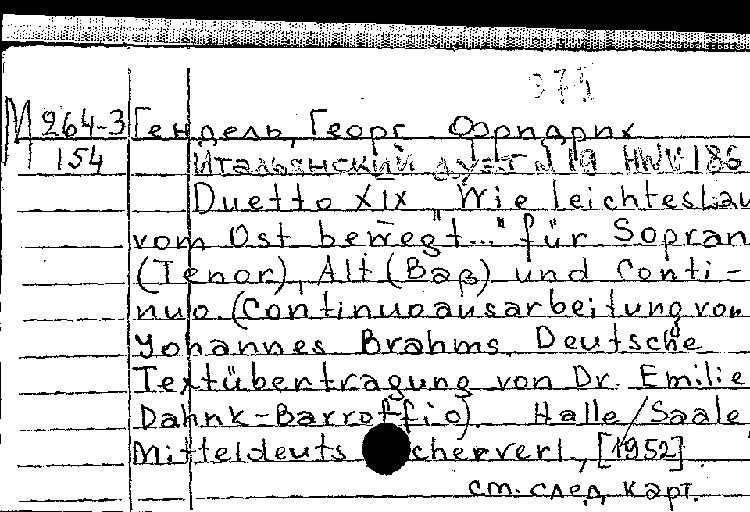 375
М 264-3 Гендель, Георг Фридрих
154 Итальянский дуэт № 19 HWV 186
Duetto XIX „Wie leichtes Lau
vom Ost bewegt..." für Sopran
(Tenor), Alt (Baß) und Conti-
nuo. (Continuoausarbeitung von
Yohannes Brahms. Deutsche
Textübertragung von Dr. Emilie
Dahnk-Barroffio). Halle/Saale,
Mitteldeutscherverl., [1952].
см. след. карт.